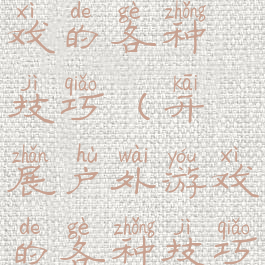 xì de gè zhǒng
戏的各种
jì qiǎo kāi
技巧(开
zhǎn hù wài yóu xì
展户外游戏
de gè zhǒng jì qiǎo
的各种技巧